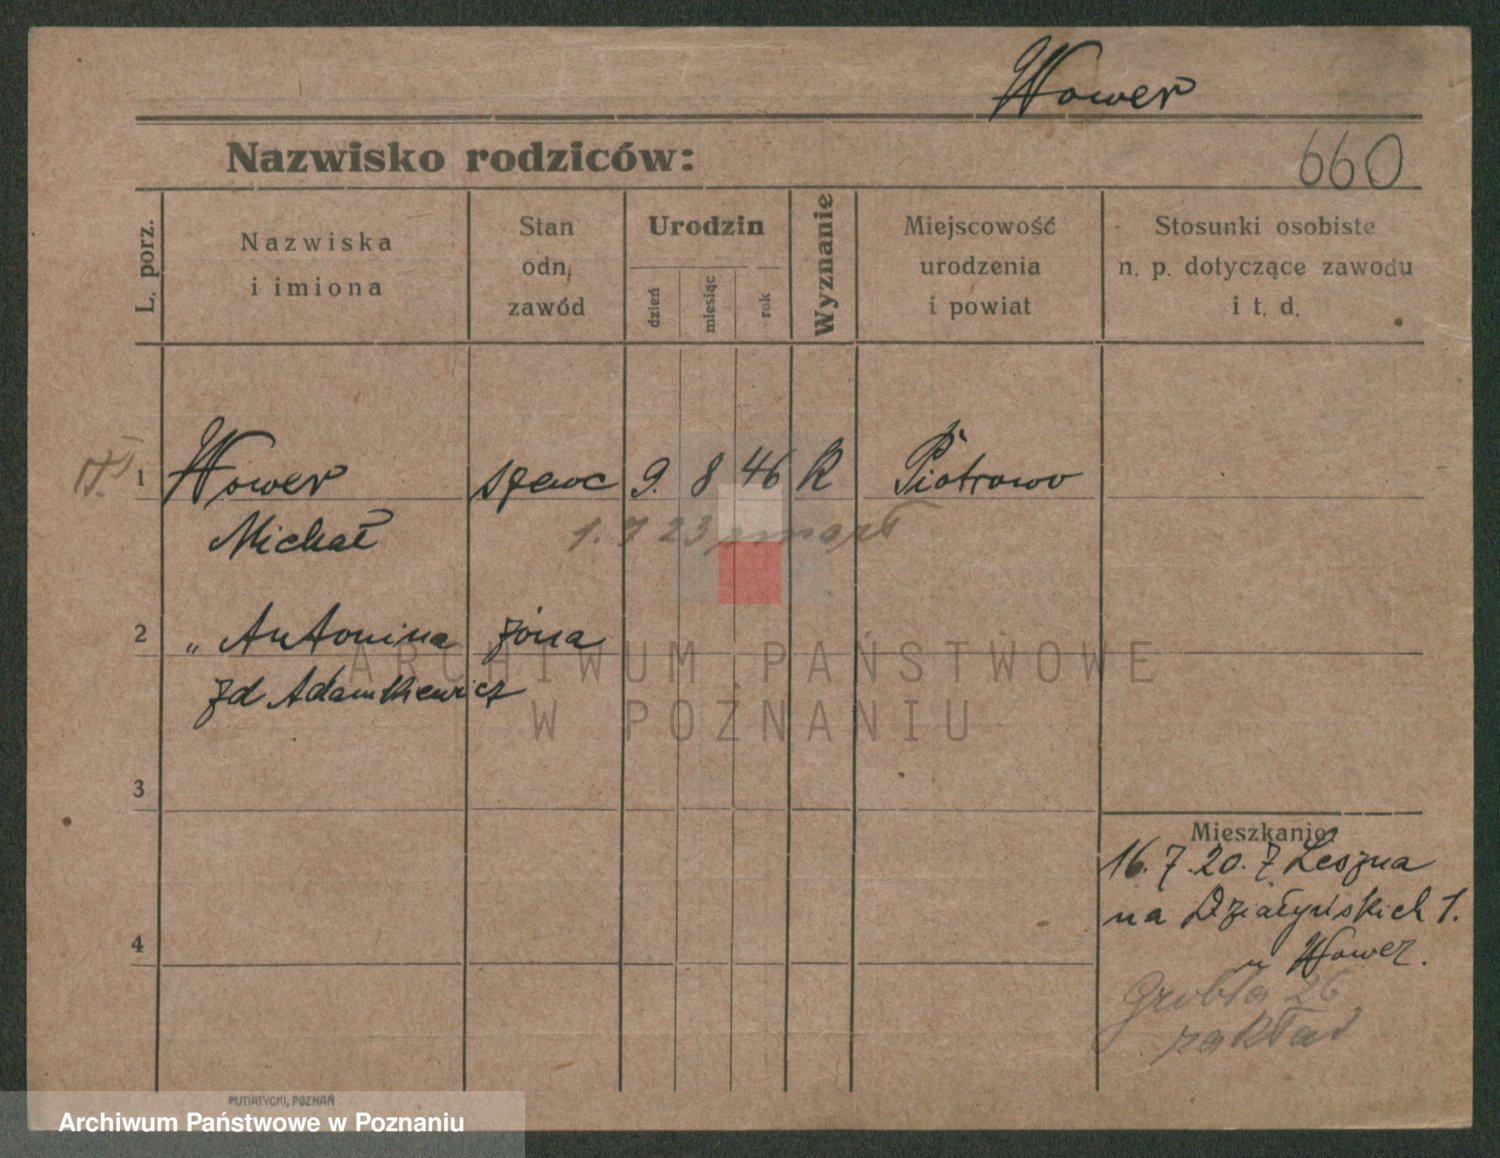 Wower
Nazwisko rodziców:
660
L. porz.
Nazwiska
i imiona
Stan
odn,
zawód
Urodzin
dzień
miesiąc
rok
Wyznanie
Miejscowość
urodzenia
i powiat
Stosunki osobiste
n. p. dotyczące zawodu
i t. d.
1 Wower szewc 9. 8 46 R Piotrowo
1. 7 23 zmarł
Michał
2 " Antonina żona
zd Adamkiewicz
ARCHIWUM PAŃSTWOWE
W POZNANIU
3
Mieszkanie:
16. 7. 20. z Leszna
na Działyńskich 1.
u Wower.
4
Grobla 26
zakład
PUTIATYCKI, POZNAŃ
Archiwum Państwowe w Poznaniu